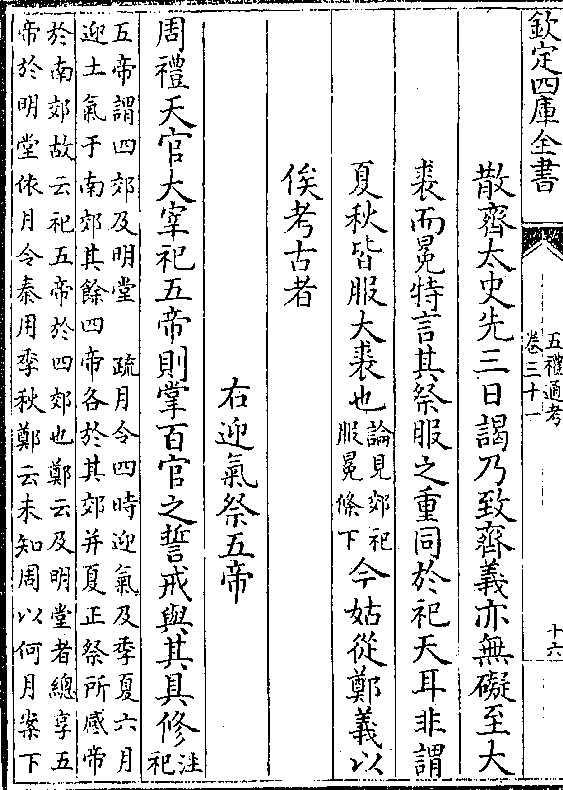 欽定四庫全書
五禮通考
卷三十一
十六
散齊太史先三日謁乃致齊義亦無礙至大
裘而冕特言其祭服之重同於祀天耳非謂
夏秋皆服大裘也論見郊祀
服冕條下今姑從鄭義以
俟考古者
右迎氣祭五帝
周禮天官大宰祀五帝則掌百官之誓戒與其具修注
祀
五帝謂四郊及明堂 疏月令四時迎氣及季夏六月
迎土氣于南郊其餘四帝各於其郊并夏正祭所感帝
於南郊故云祀五帝於四郊也鄭云及明堂者總享五
帝於明堂依月令秦用季秋鄭云未知周以何月案下